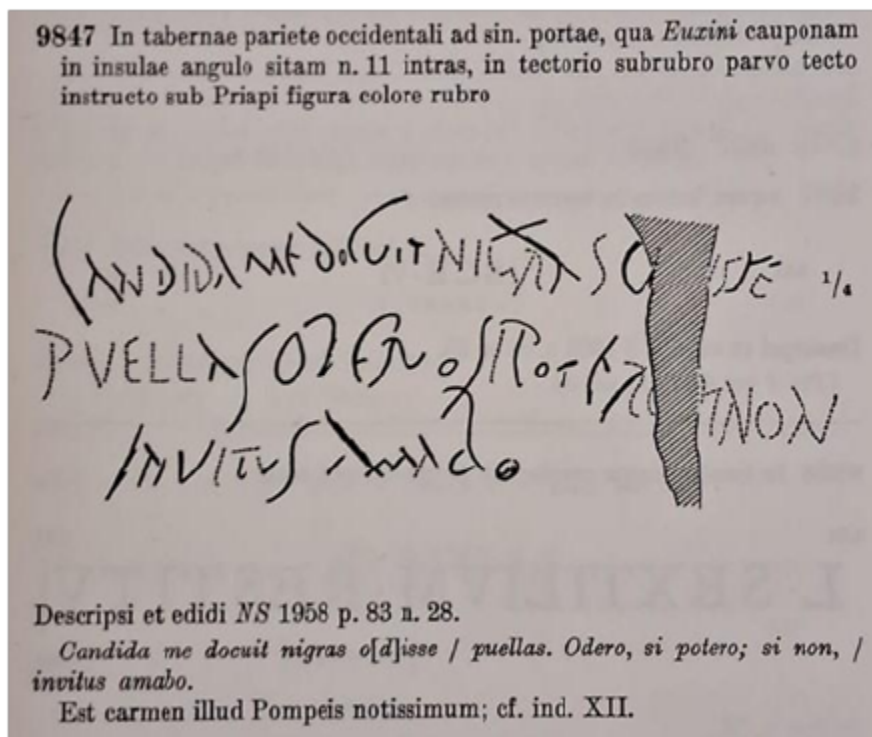 9847 In tabernae pariete occidentali ad sin. portae, qua Euxini cauponam
in insulae angulo sitam n. 11 intras, in tectorio subrubro parvo tecto
instructo sub Priapi figura colore rubro
CANDIDA ME DOCVIT NIGRAS O ISSE 1/4
PVELLAS ODERO SI POTERO NON
INVITVS AMABO
Descripsi et edidi NS 1958 p. 83 n. 28.
Candida me docuit nigras o[d]isse / puellas. Odero, si potero; si non, /
invitus amabo.
Est carmen illud Pompeis notissimum; cf. ind. XII.